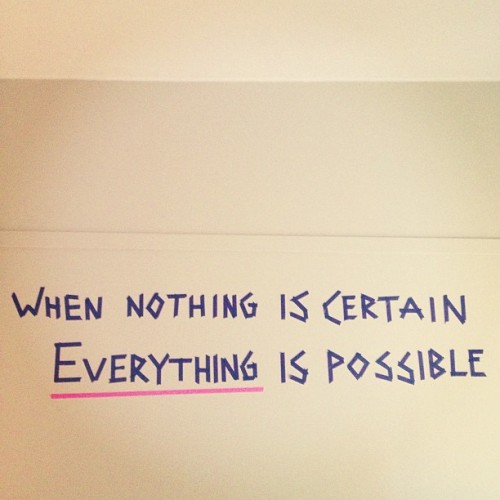 WHEN NOTHING IS CERTAIN
EVERYTHING IS POSSIBLE